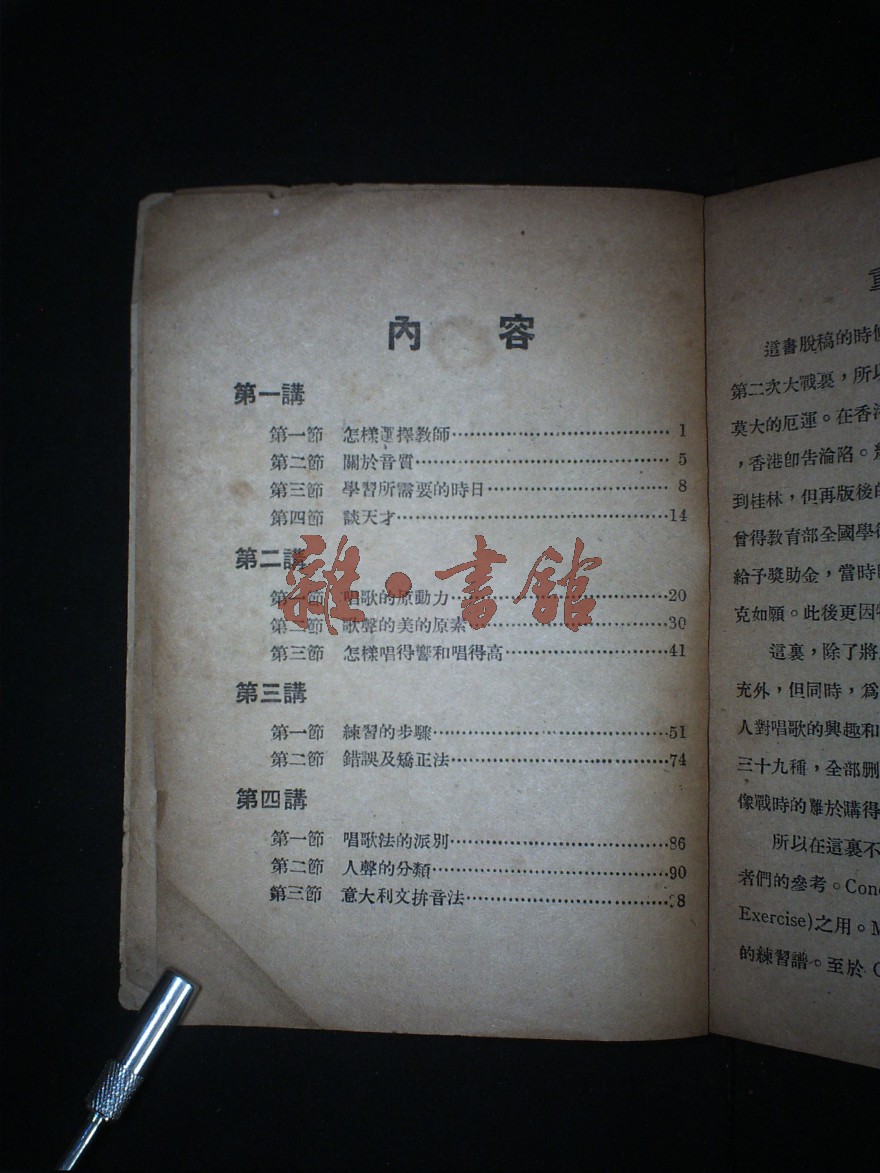 內 容
第一講
第一節 怎樣選擇教師 1
第二節 關於音質 5
第三節 學習所需要的時日 8
第四節 談天才 14
第二講
第一節 唱歌的原動力 20
第二節 歌聲的美的原素 30
第三節 怎樣唱得響和唱得高 41
第三講
第一節 練習的步驟 51
第二節 錯誤及矯正法 74
第四講
第一節 唱歌法的派別 86
第二節 人聲的分類 90
第三節 意大利文拚音法 98
雜·書館
這書脫稿的時
第二次大戰裏，所以
莫大的厄運。在香港
，香港卽告淪陷。
到桂林，但再版後的
曾得教育部全國學
給予獎助金，當時
克如願。此後更因
這裏，除了將
充外，但同時，爲
人對唱歌的興趣和
三十九種，全部删
像戰時的難於購得
所以在這裏不
者們的參考。Con
Exercise)之用。M
的練習譜。至於 C